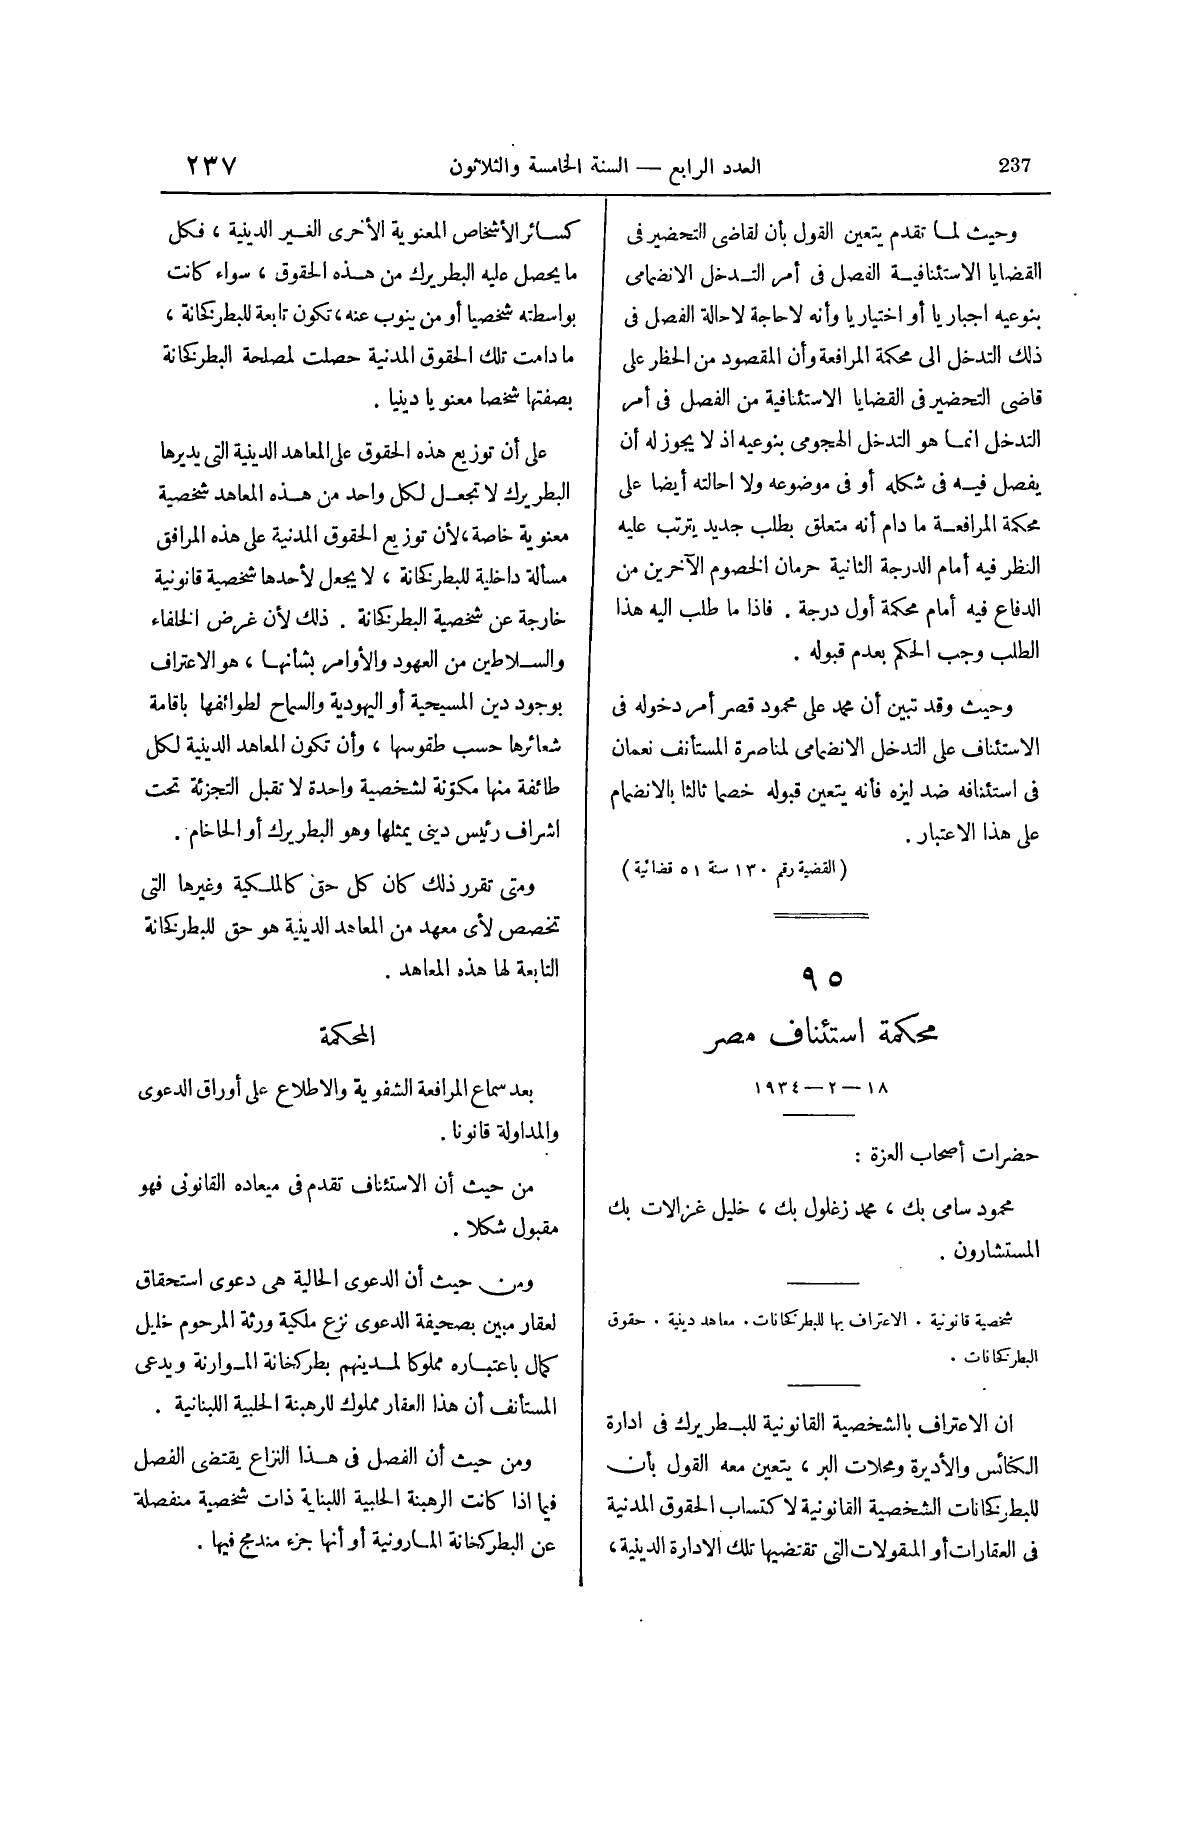 237
العدد الرابع — السنة الخامسة والثلاثون
٢٣٧
وحيث لما تقدم يتعين القول بأن لقاضى التحضير فى
القضايا الاستئنافية الفصل فى أمر التدخل الانضمامى
بنوعيه اجباريا أو اختياريا وأنه لاحاجة لاحالة الفصل فى
ذلك التدخل الى محكمة المرافعة وأن المقصود من الحظر على
قاضى التحضير فى القضايا الاستئنافية من الفصل فى أمر
التدخل انما هو التدخل الهجومى بنوعيه اذ لا يجوز له أن
يفصل فيه فى شكله أو فى موضوعه ولا احالته أيضا على
محكمة المرافعة ما دام أنه متعلق بطلب جديد يترتب عليه
النظر فيه أمام الدرجة الثانية حرمان الخصوم الآخرين من
الدفاع فيه أمام محكمة أول درجة . فاذا ما طلب اليه هذا
الطلب وجب الحكم بعدم قبوله .
وحيث وقد تبين أن محمد على محمود قصر أمر دخوله فى
الاستئناف على التدخل الانضمامى لمناصرة المستأنف نعمان
فى استئنافه ضد ليزه فأنه يتعين قبوله خصما ثالثا بالانضمام
على هذا الاعتبار .
( القضية رقم ١٣٠ سنة ٥١ قضائية )
٩٥
محكمة استئناف مصر
١٨ — ٢ — ١٩٣٤
حضرات أصحاب العزة :
محمود سامى بك ، محمد زغلول بك ، خليل غزالات بك
المستشارون .
شخصية قانونية . الاعتراف بها للبطركخانات . معاهد دينية . حقوق
البطركخانات .
ان الاعتراف بالشخصية القانونية للبطريرك فى ادارة
الكنائس والأديرة ومحلات البر ، يتعين معه القول بأن
للبطركخانات الشخصية القانونية لاكتساب الحقوق المدنية
فى العقارات أو المنقولات التى تقتضيها تلك الادارة الدينية ،
كسائر الأشخاص المعنوية الأخرى الغير الدينية ، فكل
ما يحصل عليه البطريرك من هذه الحقوق ، سواء كانت
بواسطته شخصيا أو من ينوب عنه ، تكون تابعة للبطركخانة ،
ما دامت تلك الحقوق المدنية حصلت لمصلحة البطركخانة
بصفتها شخصا معنويا دينيا .
على أن توزيع هذه الحقوق على المعاهد الدينية التى يديرها
البطريرك لا تجعل لكل واحد من هذه المعاهد شخصية
معنوية خاصة ، لأن توزيع الحقوق المدنية على هذه المرافق
مسألة داخلية للبطركخانة ، لا يجعل لأحدها شخصية قانونية
خارجة عن شخصية البطركخانة . ذلك لأن غرض الخلفاء
والسلاطين من العهود والأوامر بشأنها ، هو الاعتراف
بوجود دين المسيحية أو اليهودية والسماح لطوائفها باقامة
شعائرها حسب طقوسها ، وأن تكون المعاهد الدينية لكل
طائفة منها مكوّنة لشخصية واحدة لا تقبل التجزئة تحت
اشراف رئيس دينى يمثلها وهو البطريرك أو الحاخام .
ومتى تقرر ذلك كان كل حق كالملكية وغيرها التى
تخصص لأى معهد من المعاهد الدينية هو حق للبطركخانة
التابعة لها هذه المعاهد .
المحكمة
بعد سماع المرافعة الشفوية والاطلاع على أوراق الدعوى
والمداولة قانونا .
من حيث أن الاستئناف تقدم فى ميعاده القانونى فهو
مقبول شكلا .
ومن حيث أن الدعوى الحالية هى دعوى استحقاق
لعقار مبين بصحيفة الدعوى نزع ملكية ورثة المرحوم خليل
كمال باعتباره مملوكا لمدينهم بطركخانة الموارنة ويدعى
المستأنف أن هذا العقار مملوك للرهبنة الحلبية اللبنانية .
ومن حيث أن الفصل فى هذا النزاع يقتضى الفصل
فيما اذا كانت الرهبنة الحلبية اللبناية ذات شخصية منفصلة
عن البطركخانة المارونية أو أنها جزء مندمج فيها .